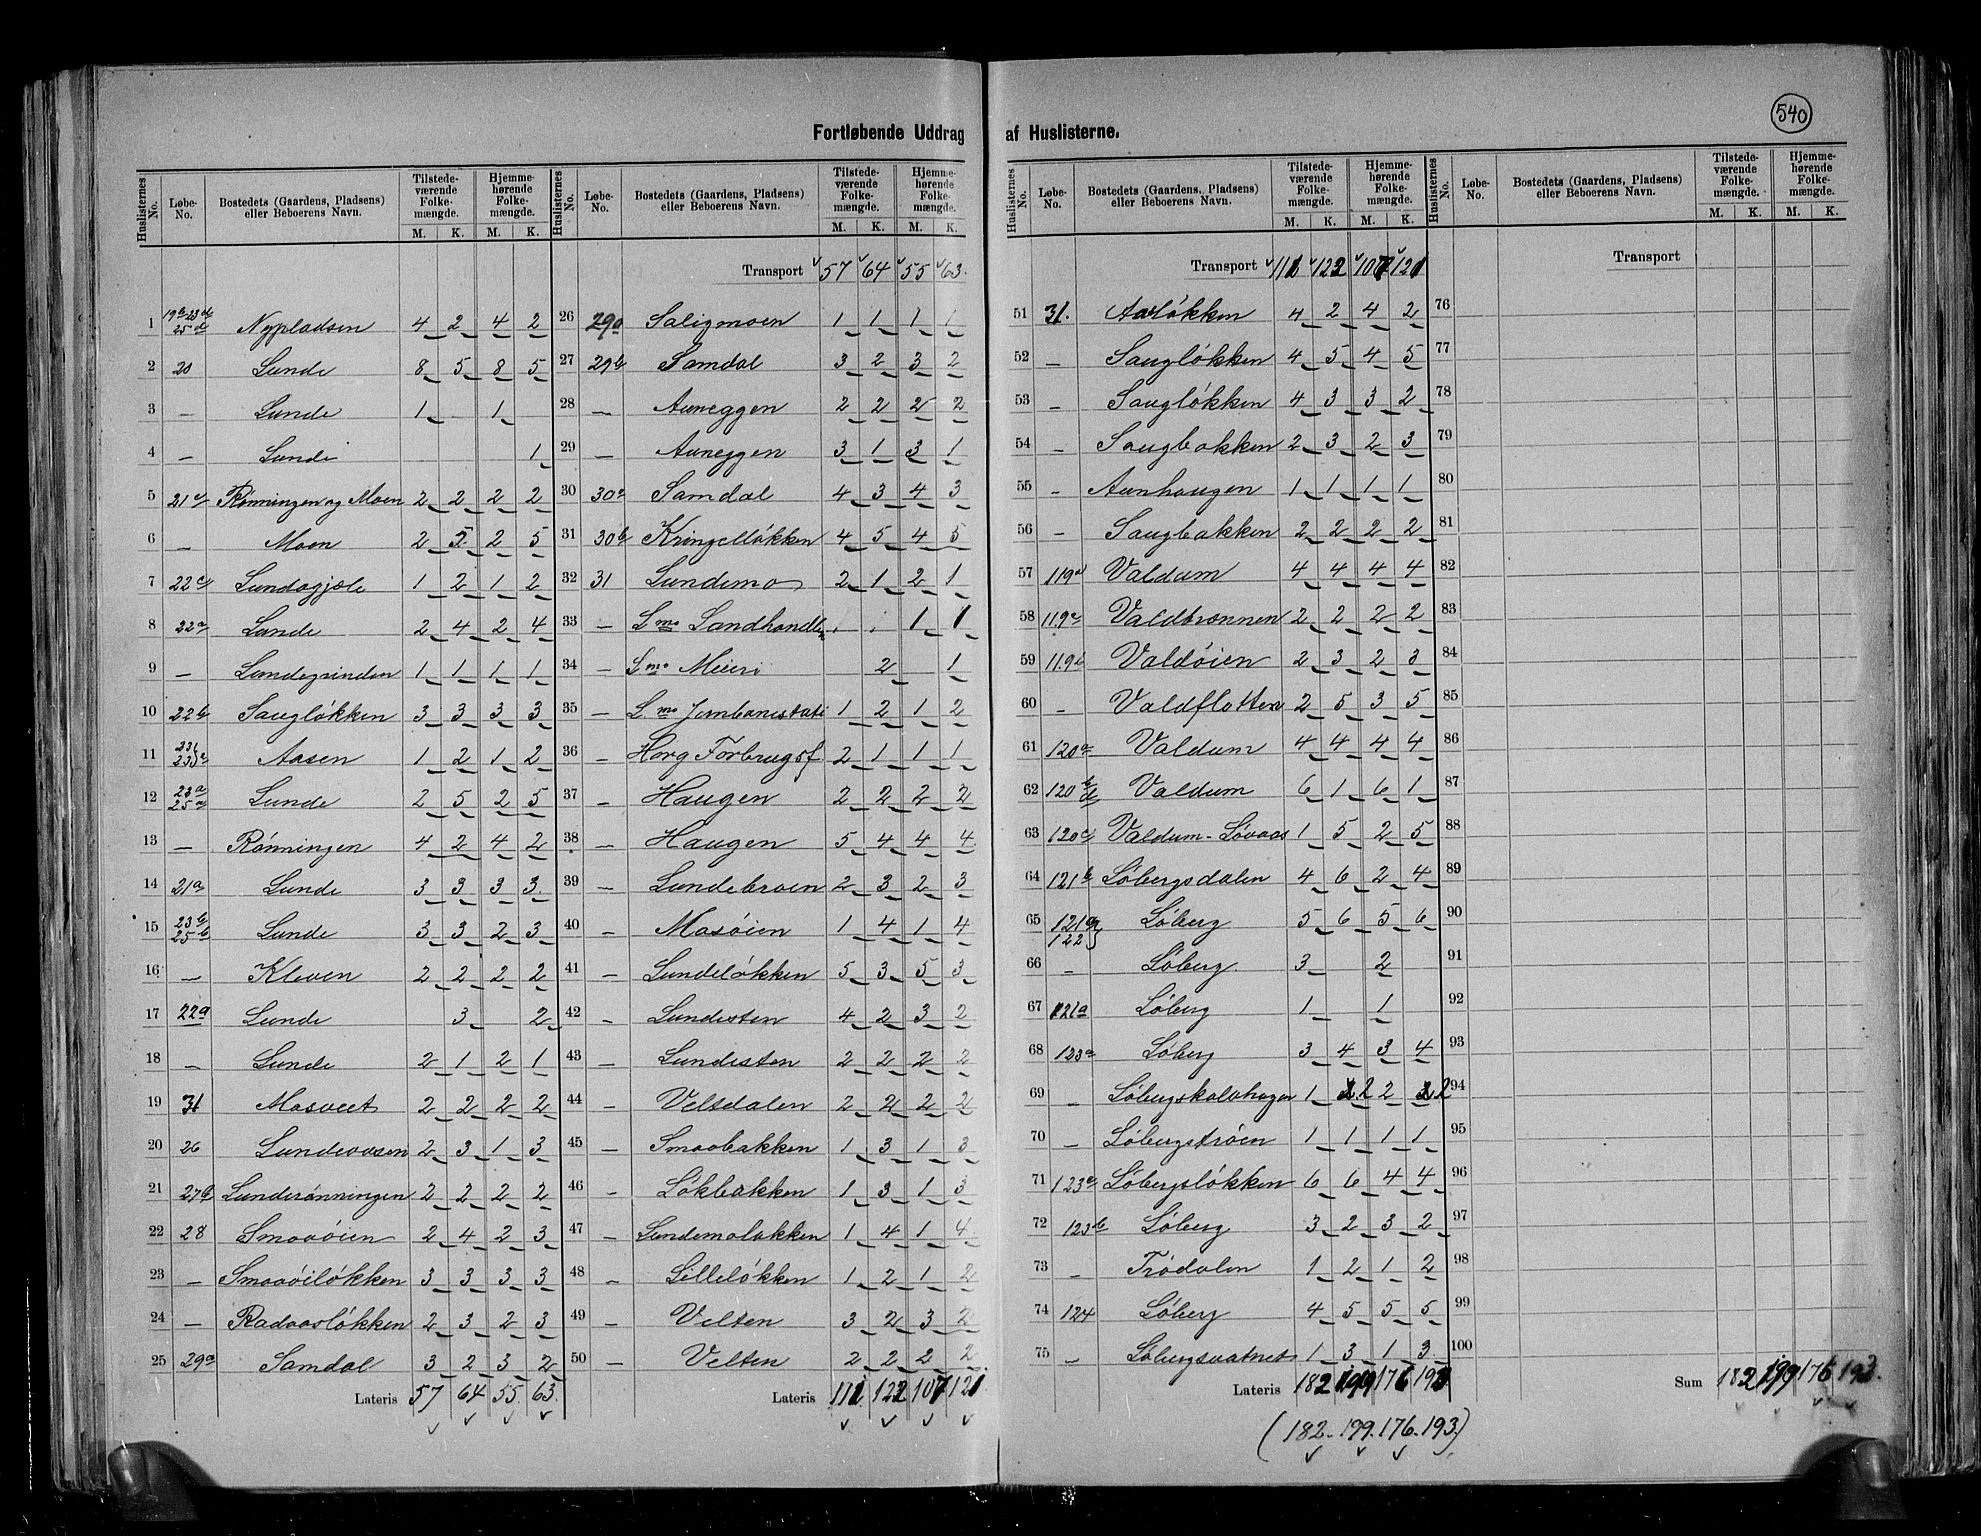 540
Fortløbende Uddrag af Huslisterne.
Huslisternes No. Løbe-No. Bostedets (Gaardens, Pladsens) eller Beboerens Navn. Tilstedeværende Folkemængde. M. K. Hjemmehørende Folkemængde. M. K.
1 Nypladsen 4 2 4 2
2 20 Lunde 8 5 8 5
3 — Lunde 1 1
4 — Lunde 1
5 Rønningen og Moen 2 2 2 2
6 — Moen 2 5 2 5
7 22c Lundagjele 1 2 1 2
8 22a Lunde 2 4 2 4
9 — Lundegrinden 1 1 1 1
10 22b Saugløkken 3 3 3 3
11 Aasen 1 2 1 2
12 23a 25a Lunde 2 5 2 5
13 — Rønningen 4 2 4 2
14 21a Lunde 3 3 3 3
15 23b 25b Lunde 3 3 2 3
16 — Kleven 2 2 2 2
17 22a Lunde 3 2
18 — Lunde 2 1 2 1
19 31 Mosveet 2 2 2 2
20 26 Lundeaasen 2 3 1 3
21 Lunderønningen 2 2 2 2
22 28 Smaaøien 2 4 2 3
23 — Smaaøiløkken 3 3 3 3
24 — Radaasløkken 2 3 2 3
25 29a Samdal 3 2 3 2
Lateris 57 64 55 63.
Huslisternes No. Løbe-No. Bostedets (Gaardens, Pladsens) eller Beboerens Navn. Tilstedeværende Folkemængde. M. K. Hjemmehørende Folkemængde. M. K.
Transport 57 64 55 63.
26 29a Saligmoen 1 1 1 1
27 29b Samdal 3 2 3 2
28 — Auneggen 2 2 2 2
29 — Auneggen 3 1 3 1
30 30a Samdal 4 3 4 3
31 30b Kringelløkken 4 5 4 5
32 31 Lundemo 2 1 2 1
33 — L.mo Landhandleri . . 1 1
34 — L.mo Meieri 2 1
35 — L.mo Jernbanestati 1 2 1 2
36 — Horg Forbrugsf. 2 1 1 1
37 — Haugen 2 2 2 2
38 — Haugen 5 4 4 4
39 — Lundebroen 2 3 2 3
40 — Mosøien 1 4 1 4
41 — Lundeløkken 5 3 5 3
42 — Lundesten 4 2 3 2
43 — Lundesten 2 2 2 2
44 — Veltdalen 2 2 2 2
45 — Smaabakken 1 3 1 3
46 — Løkbakken 1 3 1 3
47 — Lundemoløkken 1 4 1 4
48 — Lilleløkken 1 2 1 2
49 — Velten 3 2 3 2
50 — Velten 2 2 2 2
Lateris 111 122 107 121.
Huslisternes No. Løbe-No. Bostedets (Gaardens, Pladsens) eller Beboerens Navn. Tilstedeværende Folkemængde. M. K. Hjemmehørende Folkemængde. M. K.
Transport 111 122 107 121
51 31. Aarløkken 4 2 4 2
52 — Saugløkken 4 5 4 5
53 — Saugløkken 4 3 3 2
54 — Saugbakken 2 3 2 3
55 — Aunhaugen 1 1 1 1
56 — Saugbakken 2 2 2 2
57 119a Valdum 4 4 4 4
58 119c Valdbrønnen 2 2 2 2
59 119b Valdøien 2 3 2 3
60 — Valdflotten 2 5 3 5
61 120a Valdum 4 4 4 4
62 120 b d Valdum 6 1 6 1
63 120c Valdum-Løvaas 1 5 2 5
64 121b Løbergsdalen 4 6 2 4
65 121a 122 Løberg 5 6 5 6
66 — Løberg 3 2
67 121a Løberg 1 1
68 123a Løberg 3 4 3 4
69 — Løbergskolehagen 1 2 2 2
70 — Løbergstrøen 1 1 1 1
71 123c Løbergsløkken 6 6 4 4
72 123b Løberg 3 2 3 2
73 — Trødalen 1 2 1 2
74 124 Løberg 4 5 5 5
75 — Løbergsvatnet 1 3 1 3
Lateris 182 199 176 193
(182. 199. 176. 193.)
Huslisternes No. Løbe-No. Bostedets (Gaardens, Pladsens) eller Beboerens Navn. Tilstedeværende Folkemængde. M. K. Hjemmehørende Folkemængde. M. K.
Transport
76
77
78
79
80
81
82
83
84
85
86
87
88
89
90
91
92
93
94
95
96
97
98
99
100
Sum 182 199 176 193.